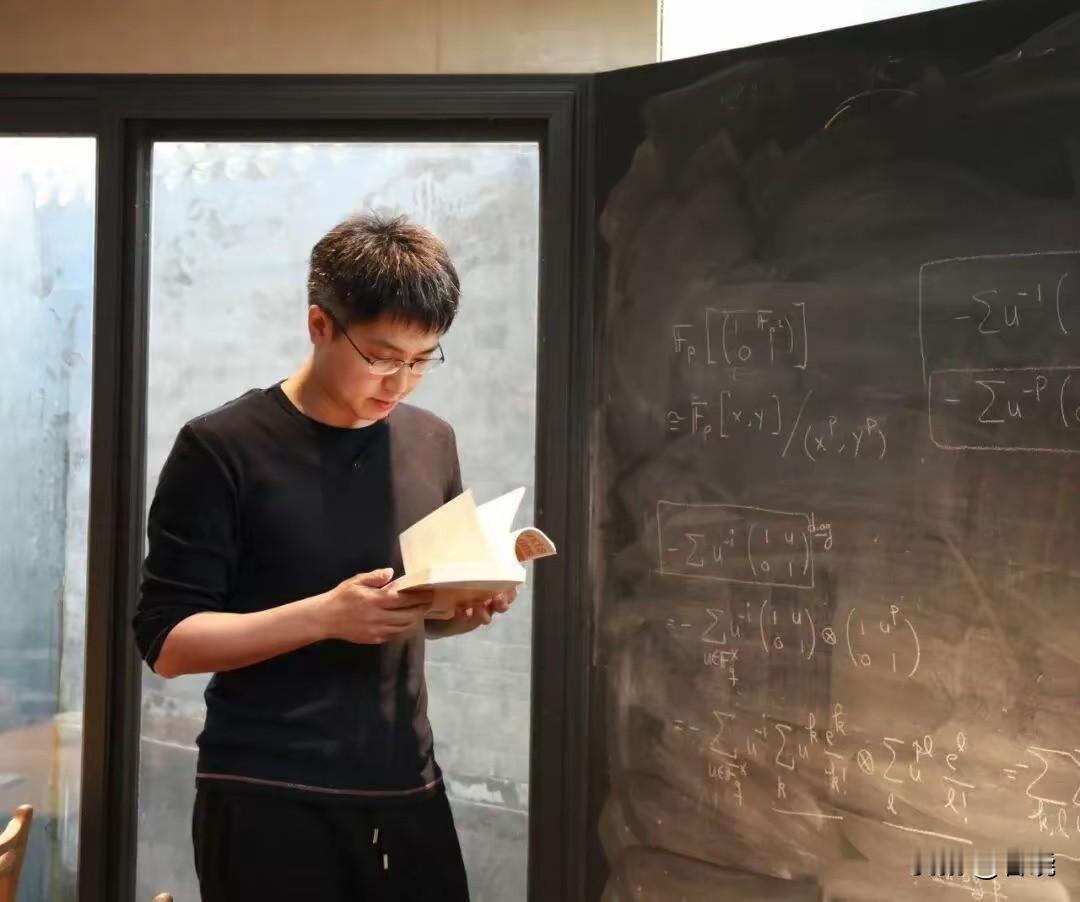 𝔽_p [ ( 1 𝔽_{p^2} ; 0 1 ) ]
≅ 𝔽_p [x,y] / (x^p, y^p)
-∑ u^{-i} ( 1 u ; 0 1 )^{diag}
= - ∑_{u∈𝔽_q^×} u^{-i} ( 1 u ; 0 1 ) ⊗ ( 1 u^p ; 0 1 )
= - ∑_{u∈𝔽_q^×} u^{-i} ∑_k u^k e^k/k! ⊗ ∑_l u^{pl} e^l/l! = - ∑_{k,l}
-∑ u^{-1} (
-∑ u^{-p} (